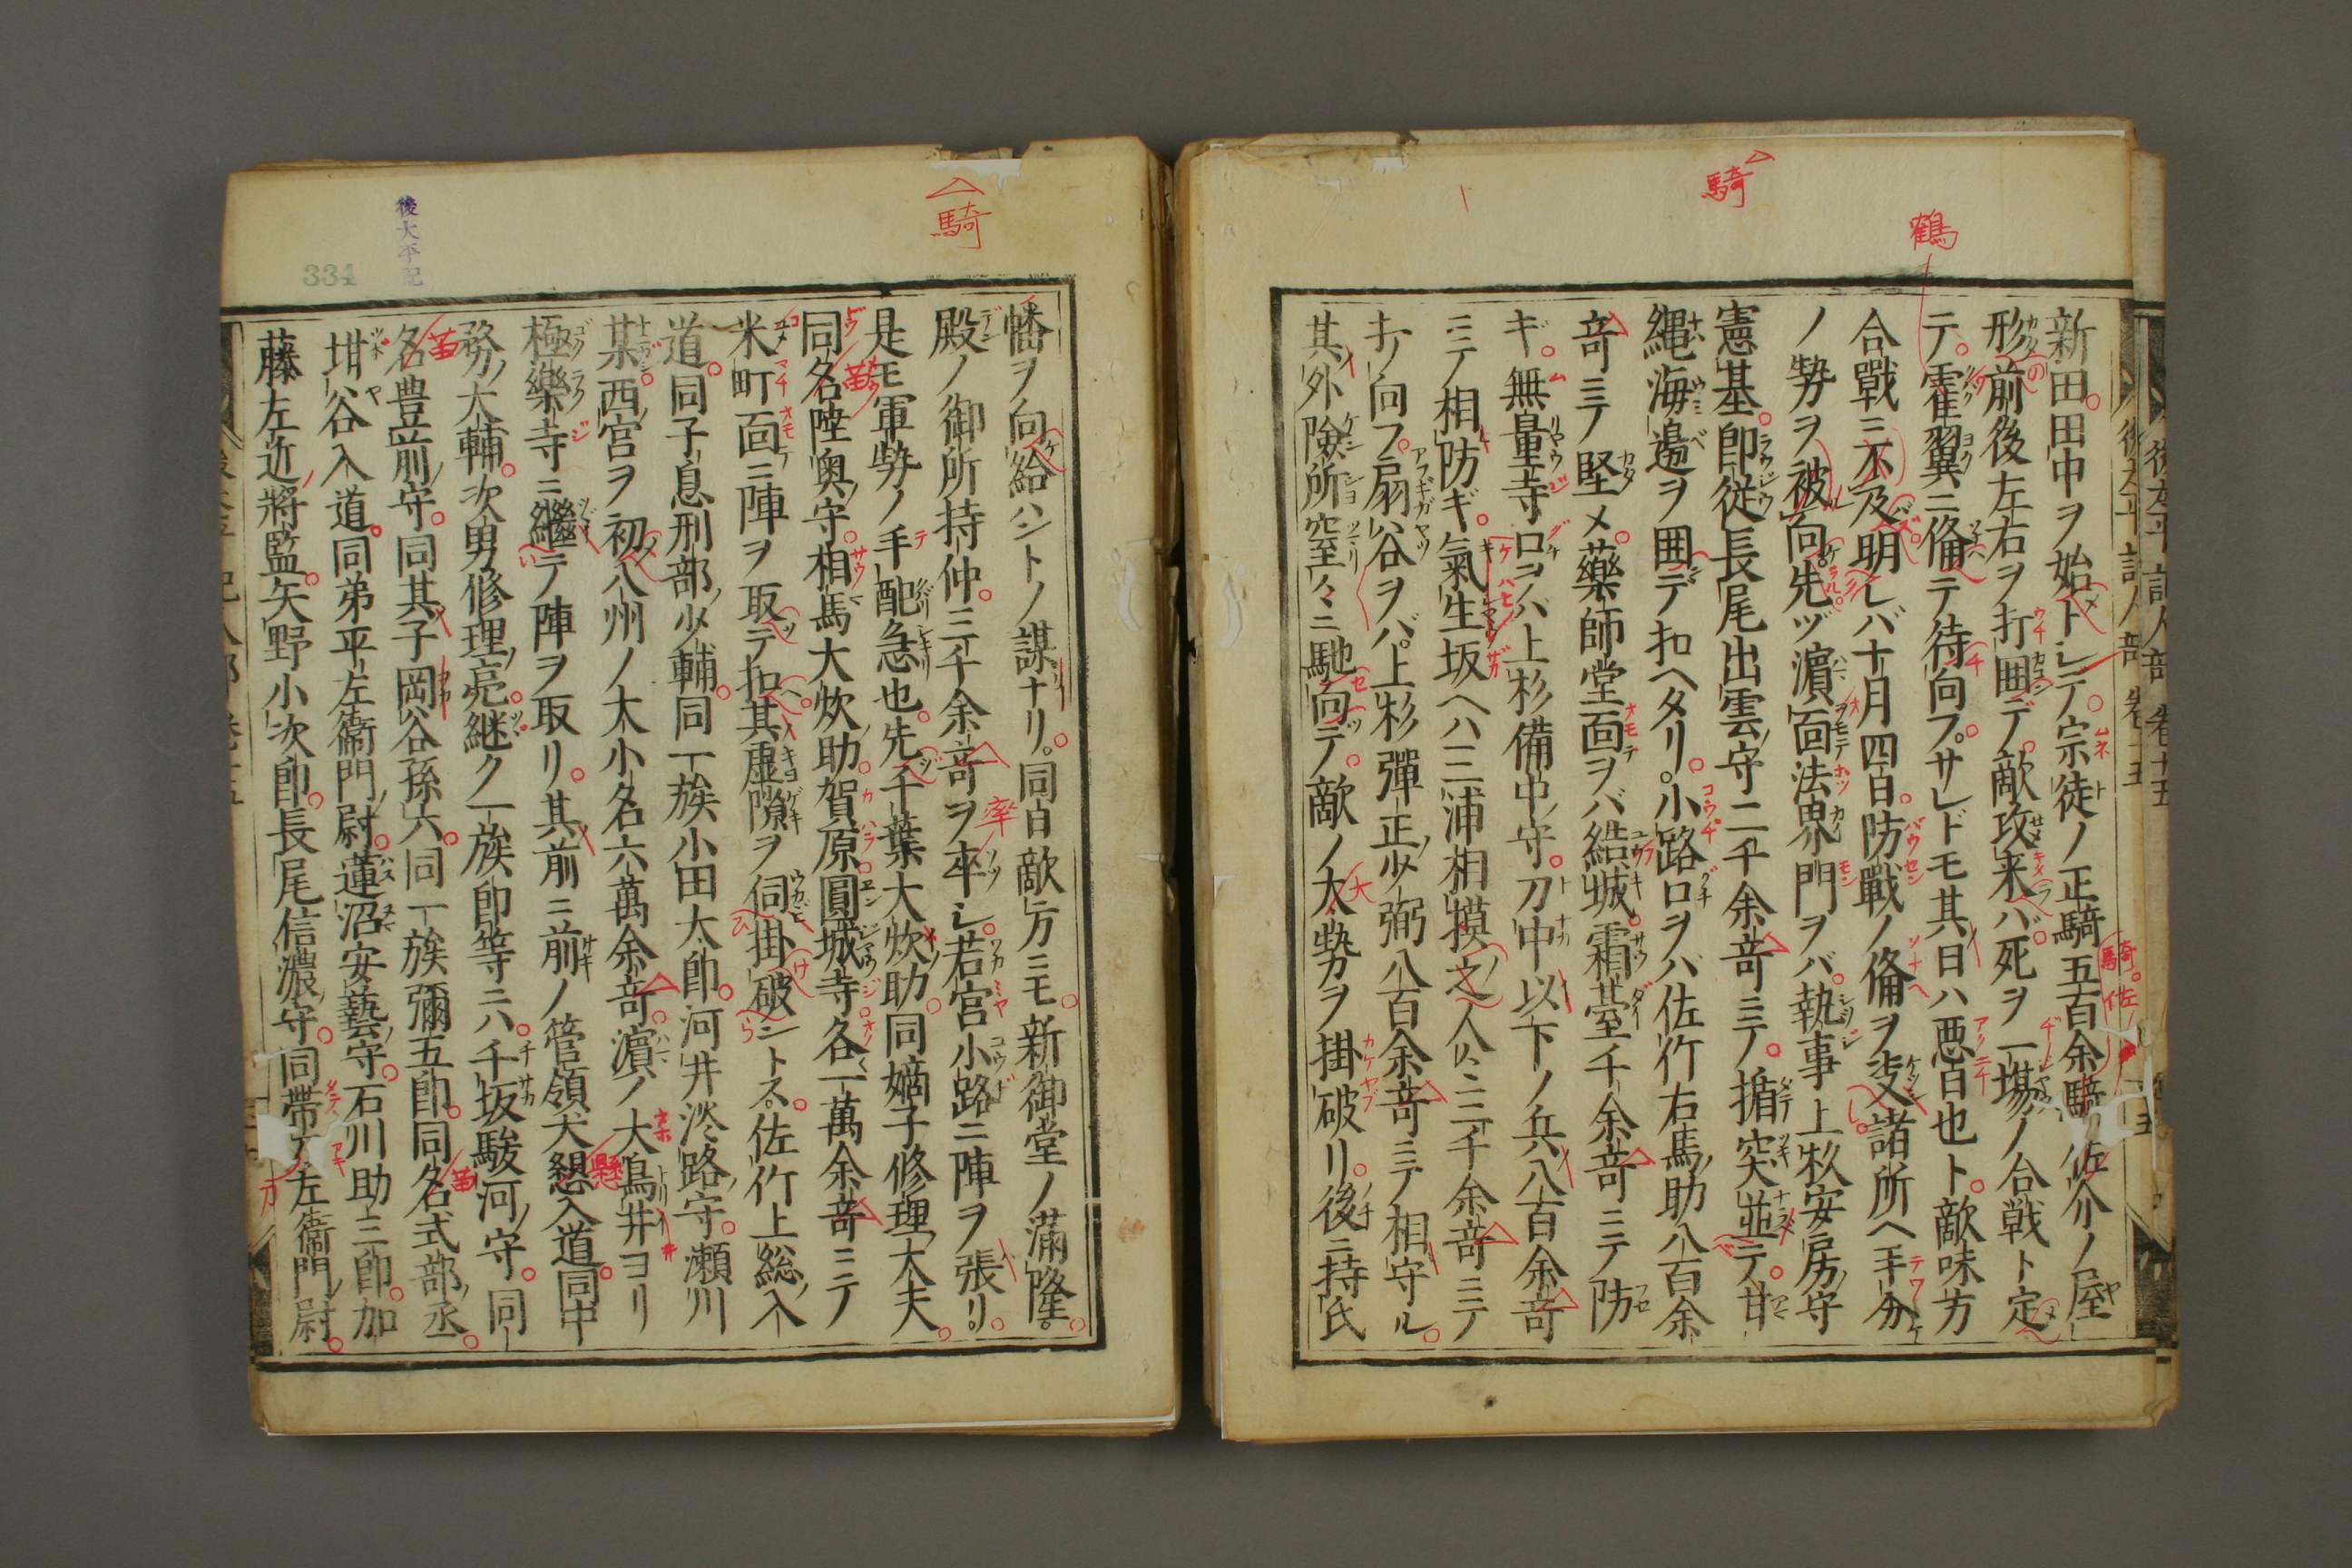 騎
鶴
新田田中ヲ始トシテ宗徒ノ正騎五百余騎佐介ノ屋
形前後左右ヲ打囲デ敵攻来バ死ヲ一場ノ合戦ト定
テ霍翼ニ備テ待向フサレドモ其日ハ悪日也ト敵味方
合戰ニ不及明レバ十月四日防戰ノ備ヲ支諸所ヘ手分
ノ勢ヲ被向先ヅ濵面法界門ヲバ執事上杉安房守
憲基郎従長尾出雲守二千余竒ニテ楯突並テ甘
縄海邉ヲ囲テ扣ヘタリ小路口ヲバ佐竹右馬助八百余
竒ニテ堅メ藥師堂面ヲバ結城霜臺千余竒ニテ防
ギ無量寺口ヲバ上杉備中守刀中以下ノ兵八百余竒
ニテ相防ギ氣生坂ヘハ三浦相摸之人〻二千余竒ニテ
向フ扇谷ヲバ上杉彈正少弼八百余竒ニテ相守ル
其外険所窒々ニ馳向テ敵ノ大勢ヲ掛破リ後ニ持氏
騎
後太平記
334
幡ヲ向給ハントノ謀ナリ同日敵方ニモ新御堂ノ滿隆
殿ノ御所持仲三千余竒ヲ卒シ若宮小路ニ陣ヲ張リ
是モ軍勢ノ手配急也先千葉大炊助同嫡子修理大夫
同名陸奥守相馬大炊助賀原圓城寺各一萬余竒ニテ
米町面ニ陣ヲ取テ扣其虚隙ヲ伺掛破ントス佐竹上総入
道同子息刑部少輔同一族小田大郎河井淡路守瀬川
某西宮ヲ初八州ノ大小名六萬余竒濵ノ大鳥井ヨリ
極樂寺ニ繼テ陣ヲ取リ其前ニ前ノ管領犬懇入道同中
務大輔次男修理亮継ク一族郎等ニハ千坂駿河守同
名豊前守同其子岡谷孫六同一族彌五郎同名式部丞
坩谷入道同弟平左衞門尉蓮沼安藝守石川助三郎加
藤左近將監矢野小次郎長尾信濃守同帯刀左衞門尉